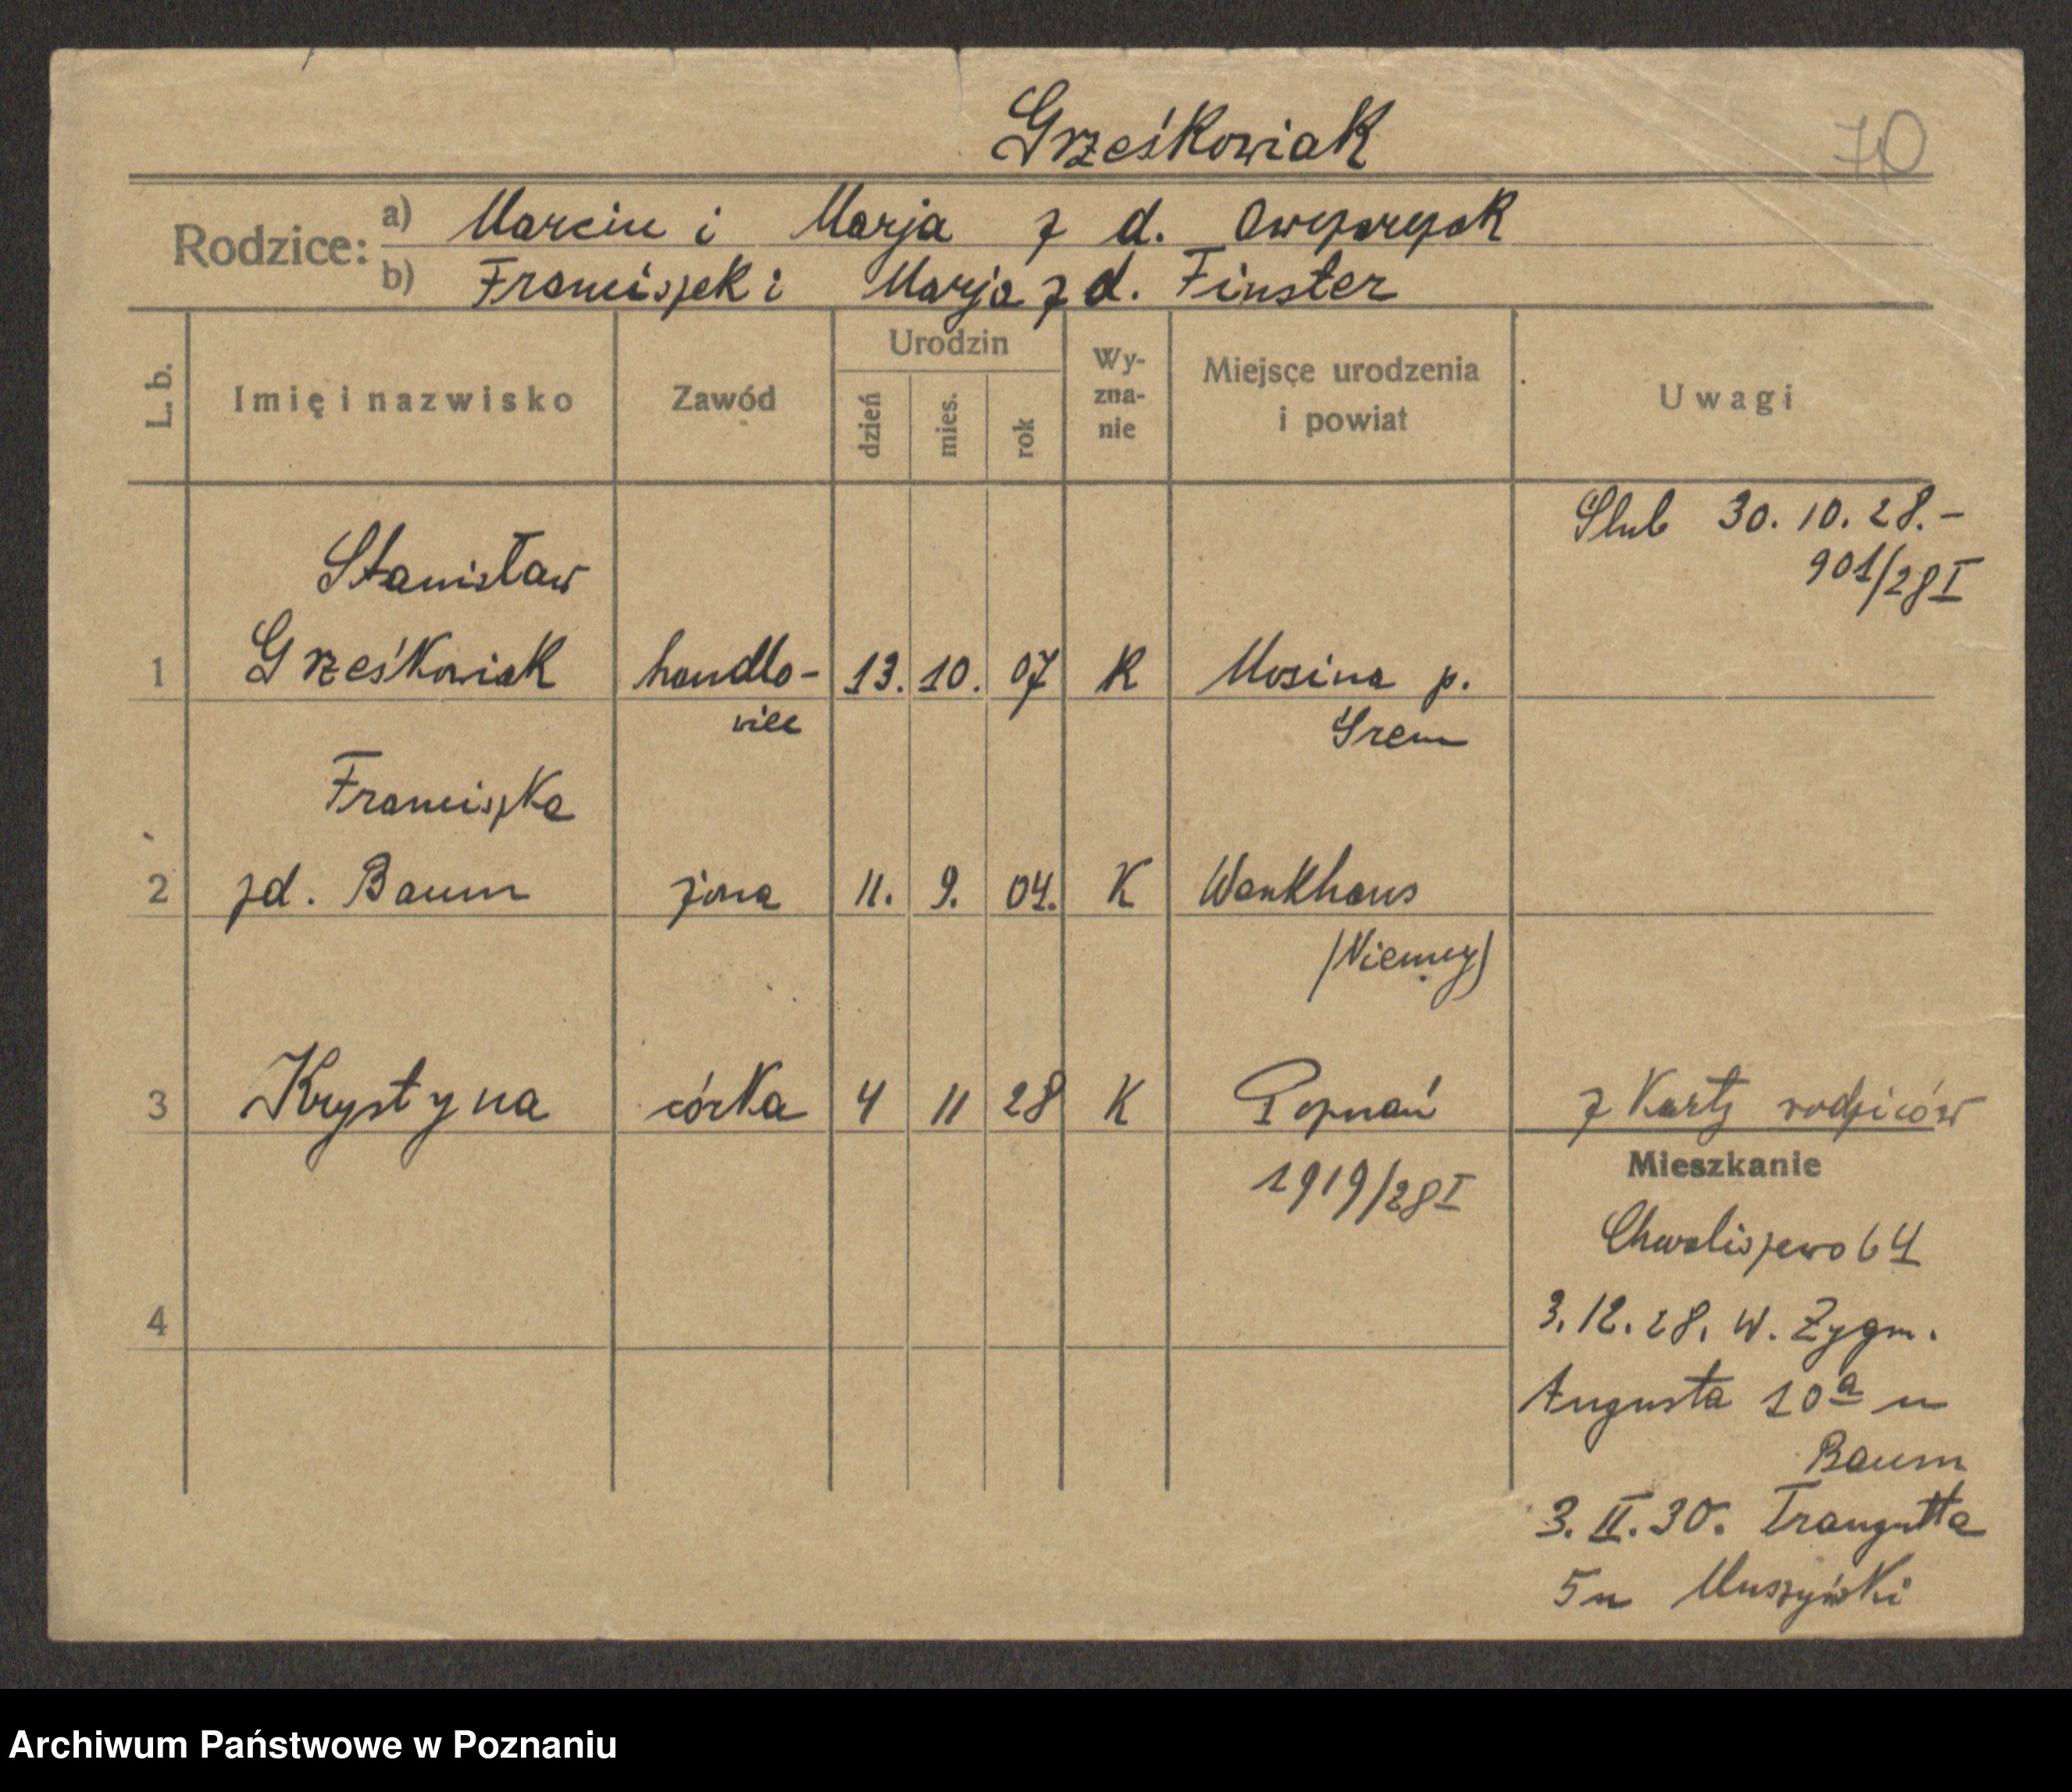 Grześkowiak
70
Rodzice: a) Marcin i Marja z d. Owczarczak
b) Franciszek i Marja z d. Finster
L. b. Imię i nazwisko Zawód Urodzin dzień mies. rok Wy-zna-nie Miejsce urodzenia i powiat Uwagi
Ślub 30. 10. 28. –
901/28 I
Stanisław
1 Grześkowiak handlo- 13. 10. 07 K Mosina p.
wiec Śrem
Franciszka
2 zd. Baum żona 11. 9. 04. K Wankhaus
(Niemcy)
3 Krystyna córka 4 11 28 K Poznań z Karty rodziców
1919/28 I
Mieszkanie
Chwaliszewo 64
4
3. 12. 28. W. Zygm.
Augusta 10a u
Baum
3. II. 30. Traugutta
5 u Muszyński
Archiwum Państwowe w Poznaniu